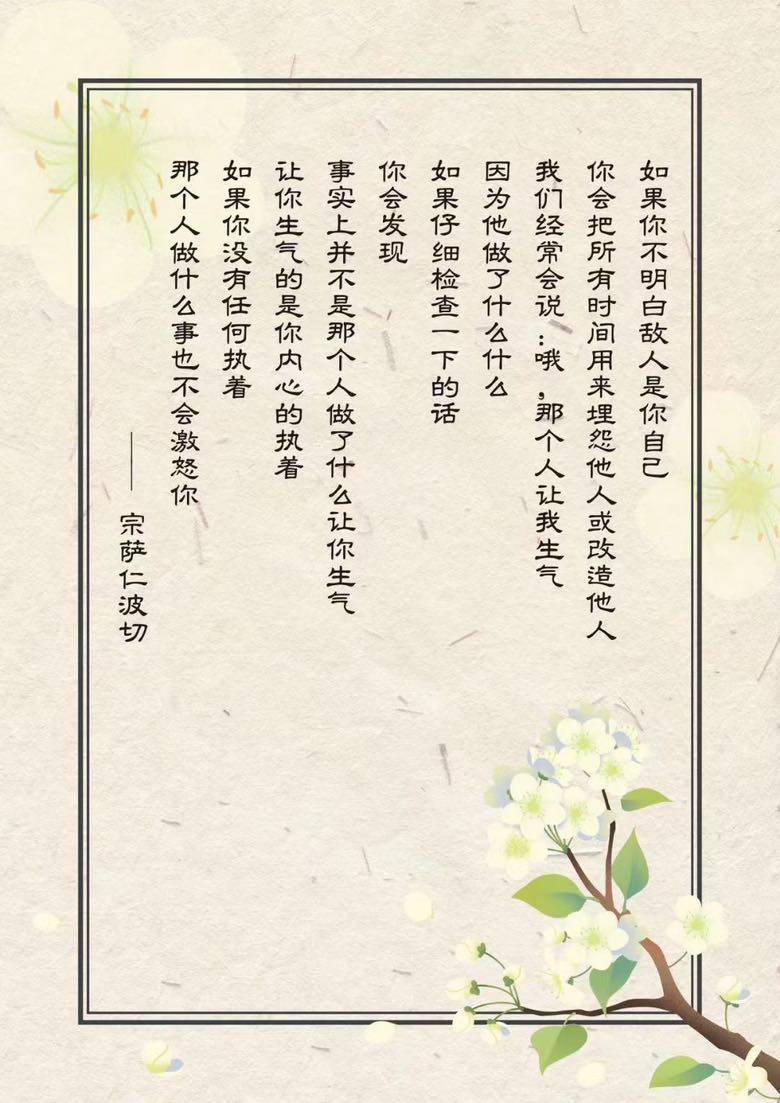 如果你不明白敌人是你自己
你会把所有时间用来埋怨他人或改造他人
我们经常会说：哦，那个人让我生气
因为他做了什么什么
如果仔细检查一下的话
你会发现
事实上并不是那个人做了什么让你生气
让你生气的是你内心的执着
如果你没有任何执着
那个人做什么事也不会激怒你
——宗萨仁波切